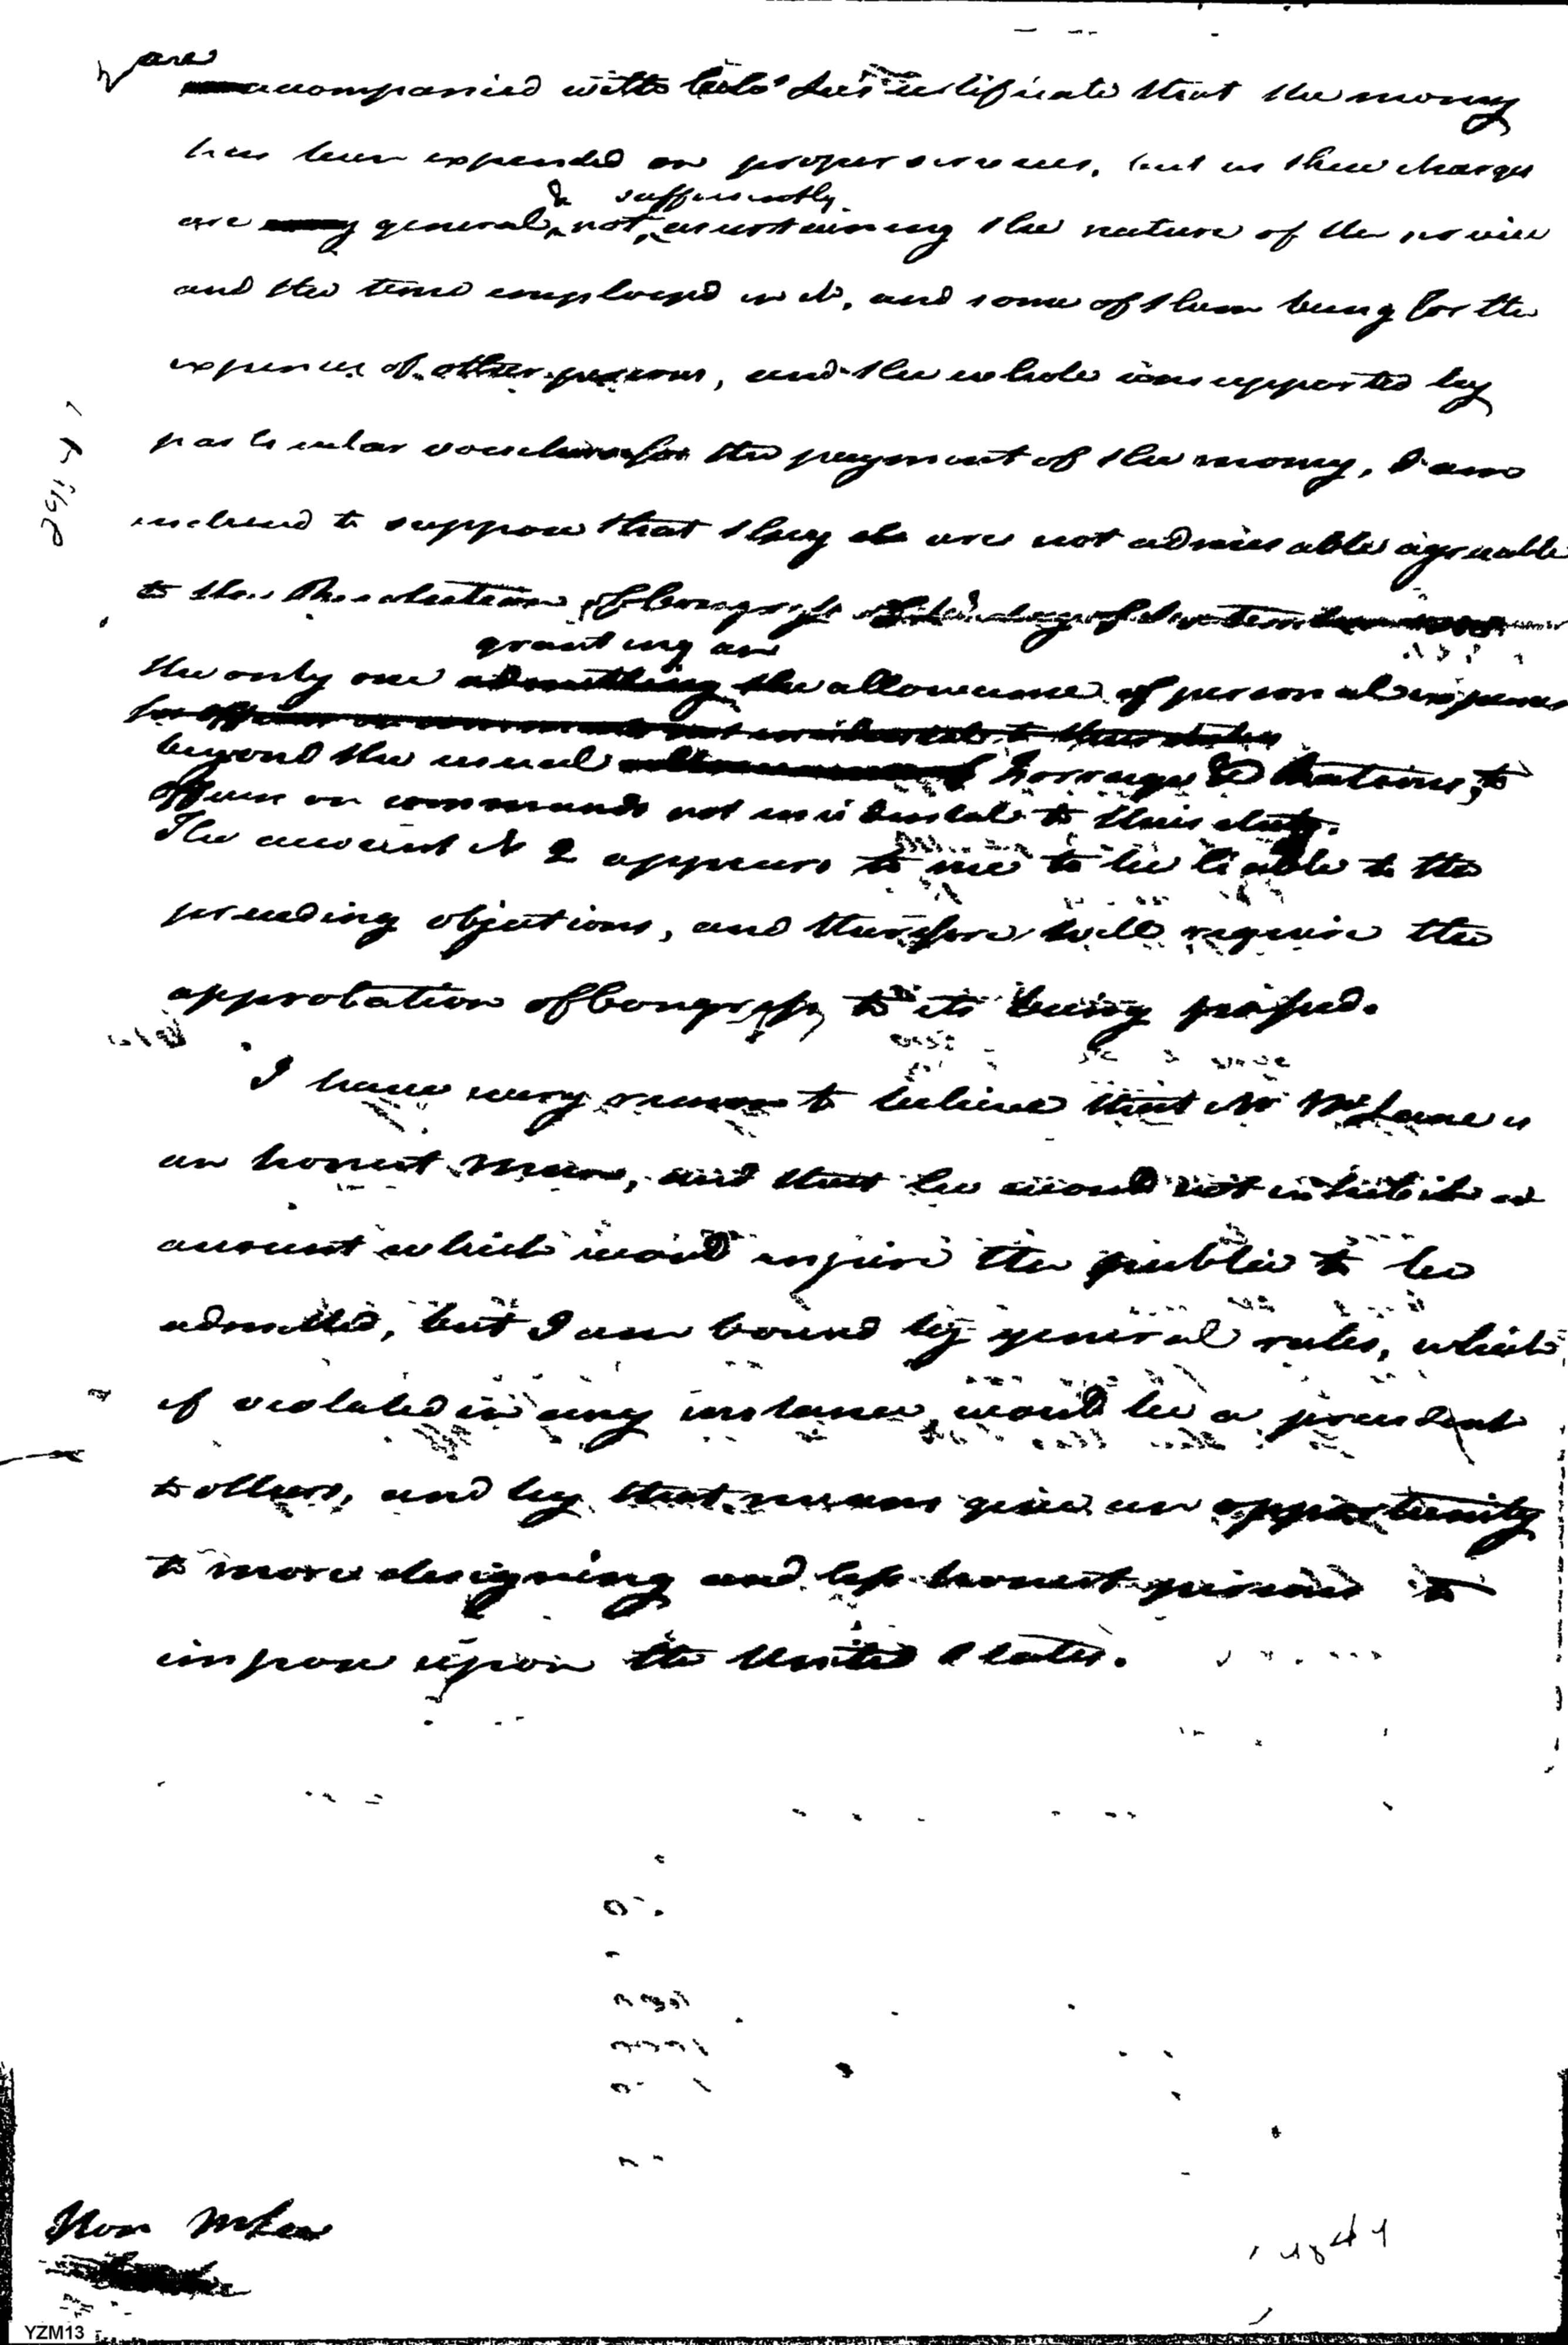 are
accompanied with Colo Lee's certificate that the money
has been expended on proper services, but as these charges
& sufficiently
are general, not ascertaining the nature of the service
and the time employed in it, and some of them being for the
expences of other persons, and the whole unsupported by
particular vouchers for the payment of the money, I am
inclined to suppose that they are not admissable agreeable
to the Resolution of Congress
granting an
the only one admitting the allowance of personal expences
for officers on commands not incidental to their duties
beyond the usual forrage & Rations, to
officers on commands not incidental to their duty.
The account No 2 appears to me to be liable to the
preceding objections, and therefore will require the
approbation of Congress, to its being passed.
I have every reason to believe that Mr McLane is
an honest man, and that he would not exhibit an
account which would injure the public to be
admitted, but I am bound by general rules, which
if violated in any instance, would be a precedent
to others, and by that means give an opportunity
to more designing and less honest persons to
impose upon the United States.
Hon Mr Lee
YZM13